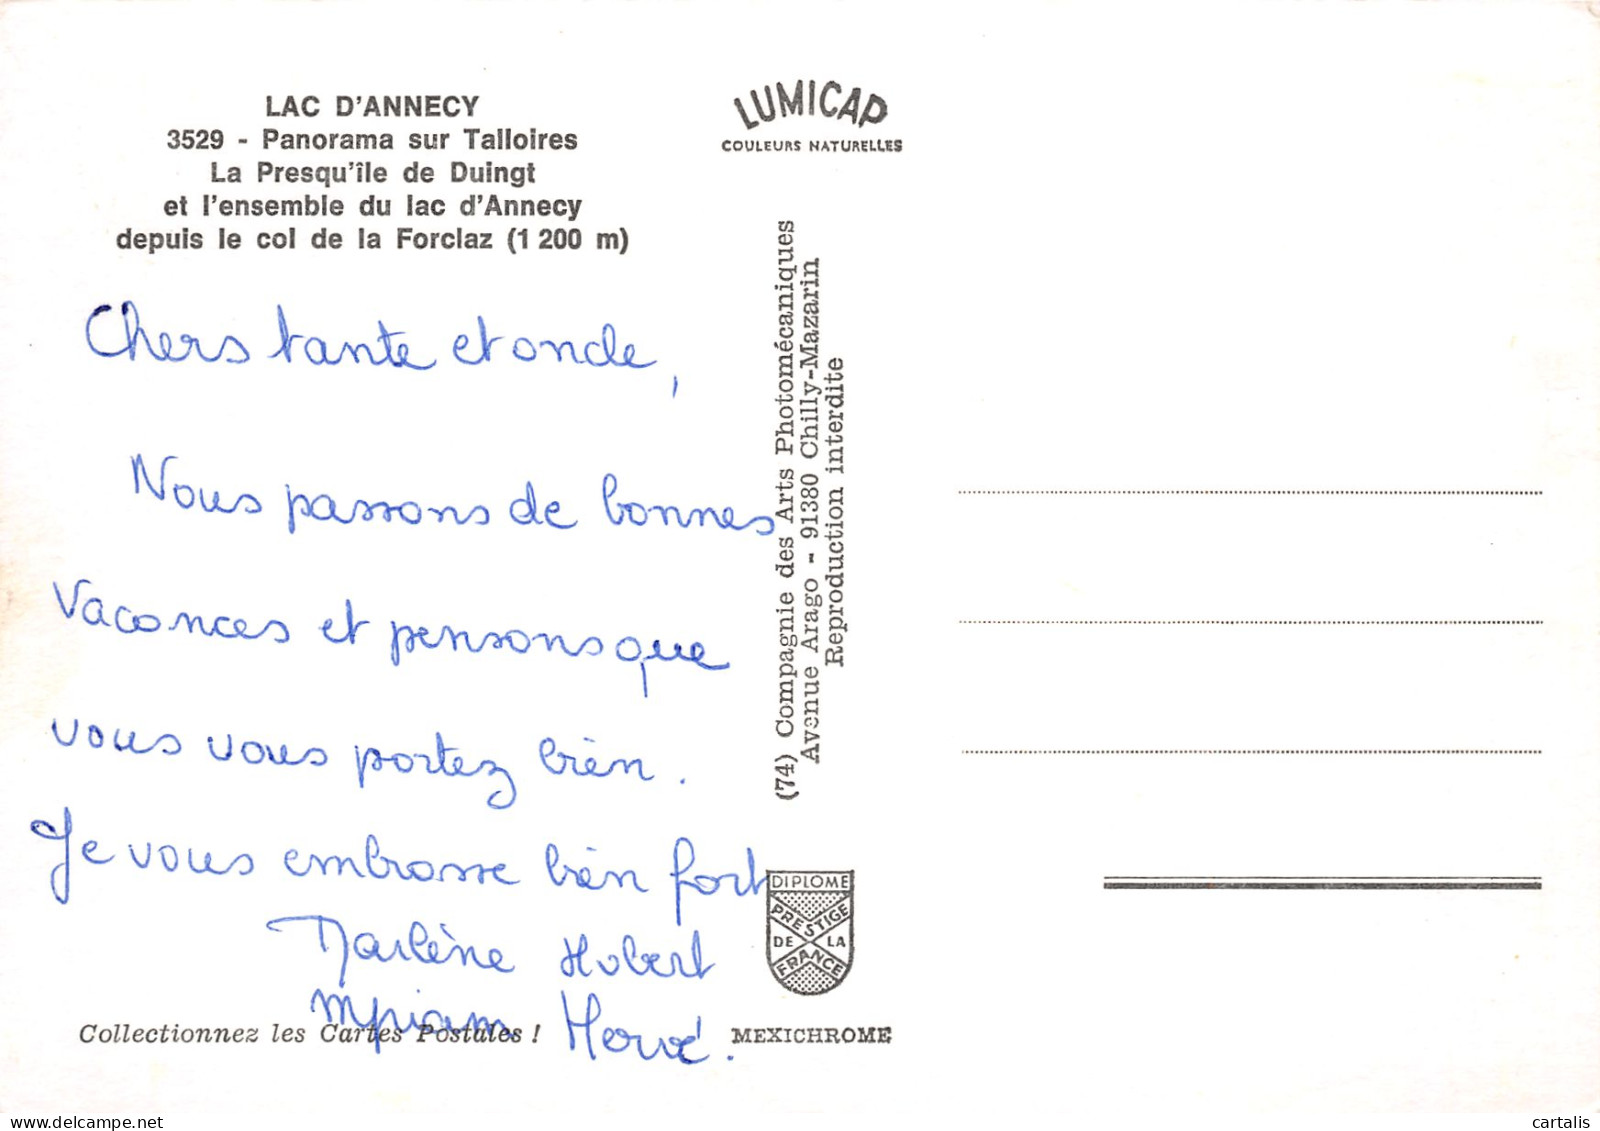 LAC D'ANNECY
3529 - Panorama sur Talloires
La Presqu'île de Duingt
et l'ensemble du lac d'Annecy
depuis le col de la Forclaz (1 200 m)
LUMICAP
COULEURS NATURELLES
Chers tante et oncle,
Nous passons de bonnes
vacances et pensons que
vous vous portez bien.
Je vous embrasse bien fort
Marlène Hubert
Myriam Hervé.
(74) Compagnie des Arts Photomécaniques
Avenue Arago - 91380 Chilly-Mazarin
Reproduction interdite
DIPLOME
PRESTIGE
DE LA
FRANCE
Collectionnez les Cartes Postales !
MEXICHROME
cartalis